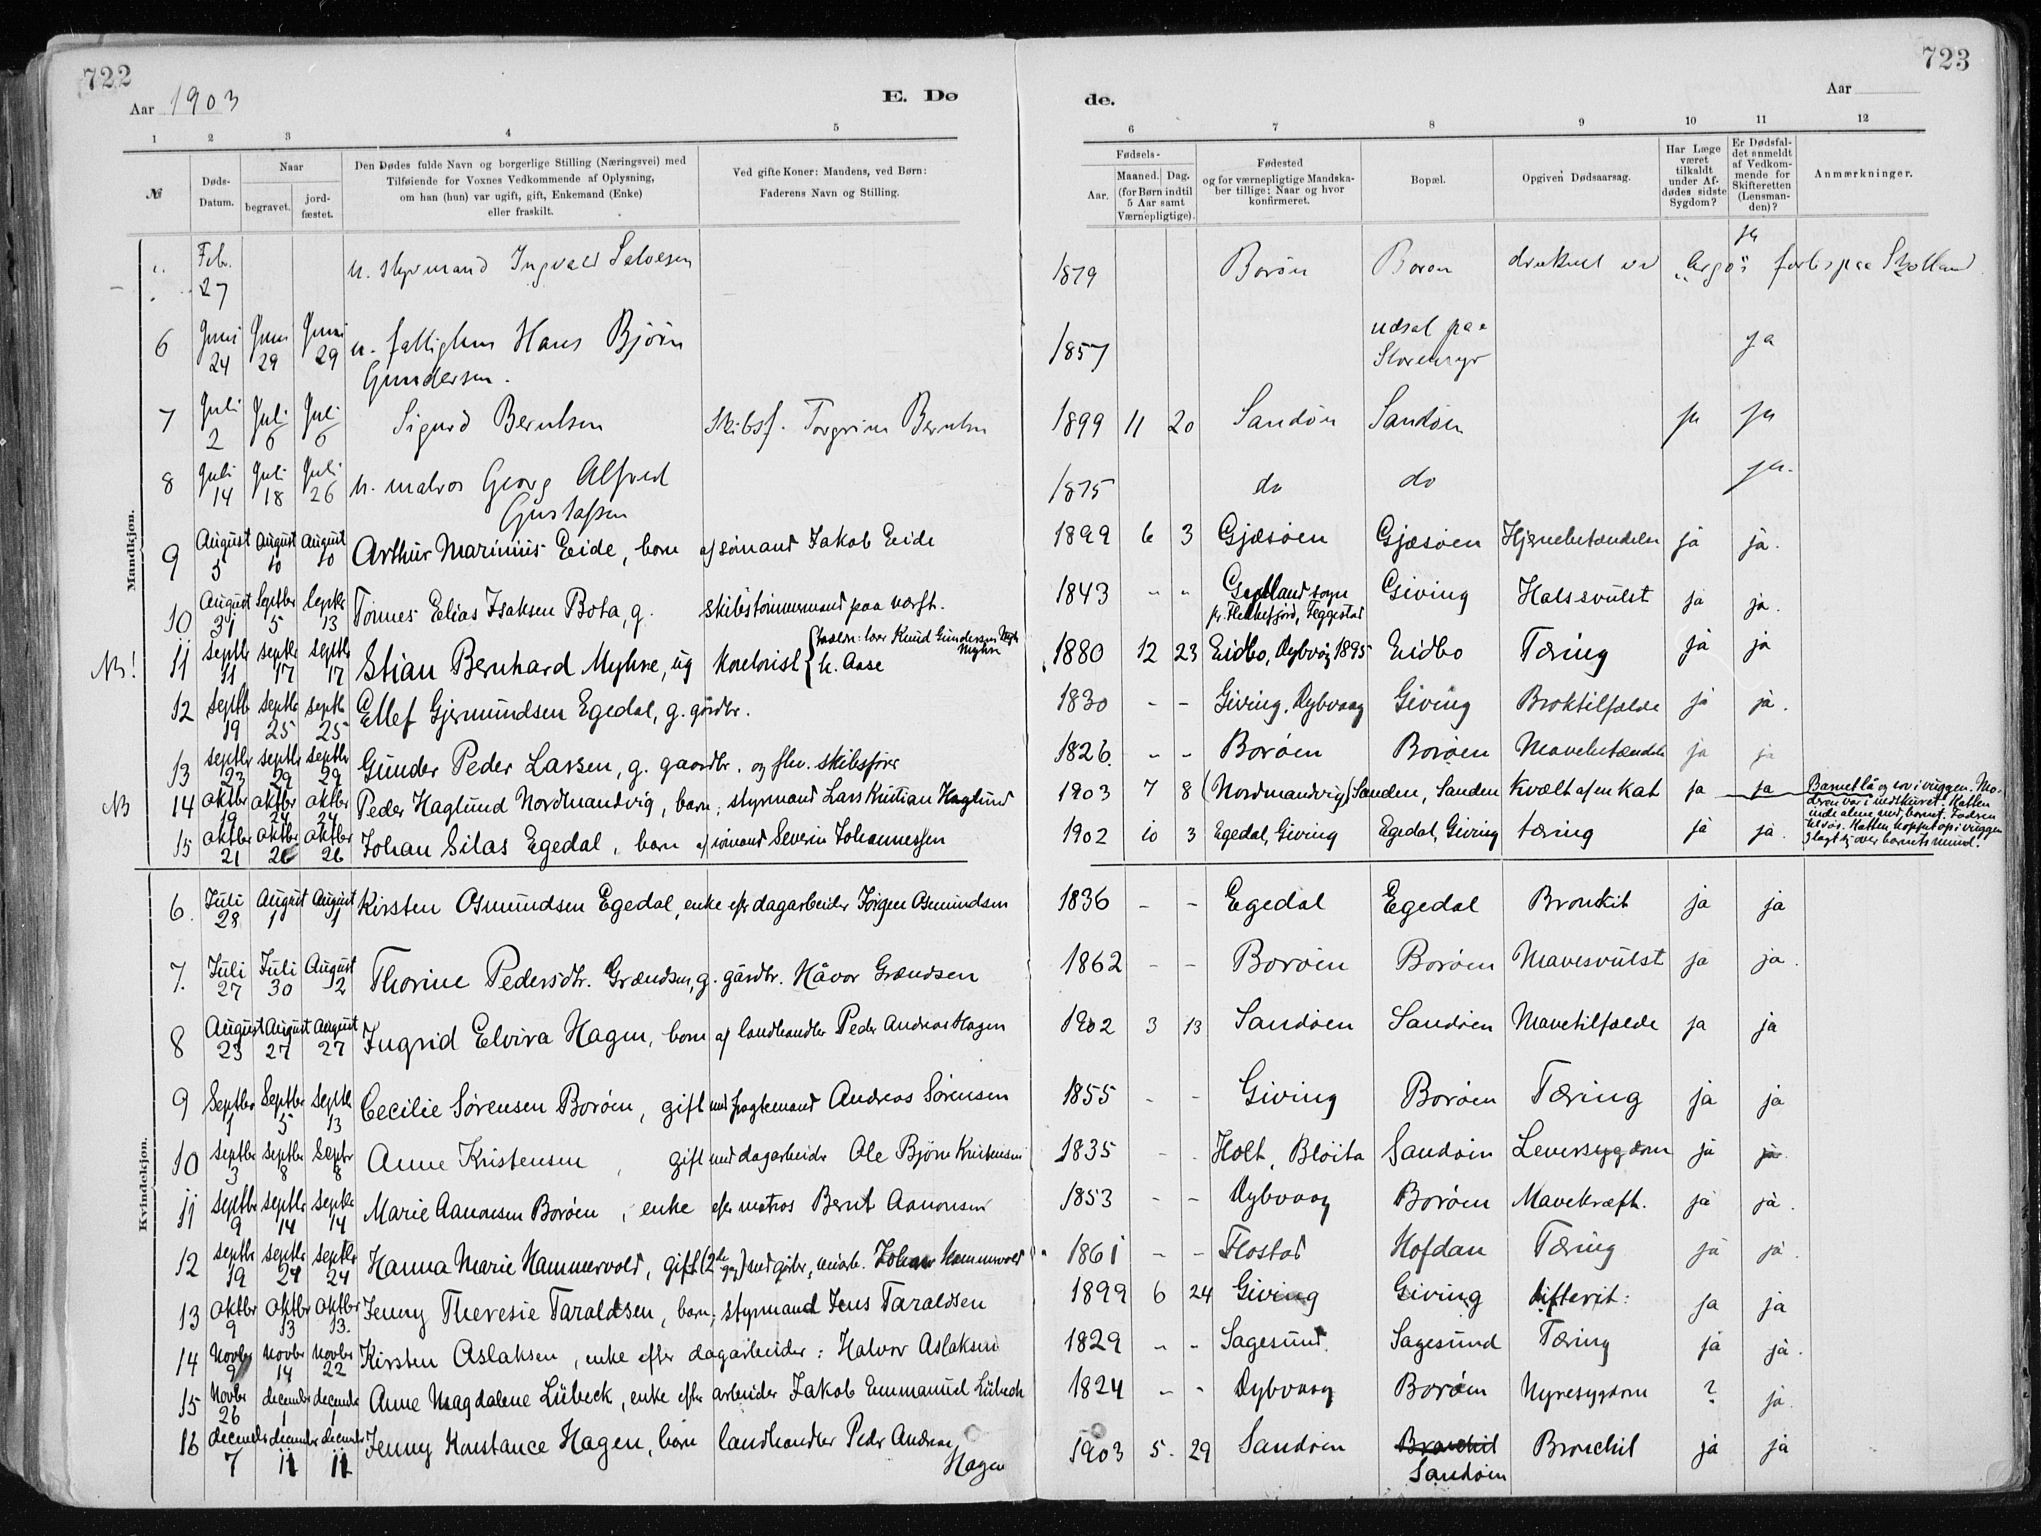 722
723
Aar 1903
E. Dø
de.
Aar
1 2 3 4 5 6 7 8 9 10 11 12
№
Døds-Datum.
Naar
begravet.
jord-fæstet.
Den Dødes fulde Navn og borgerlige Stilling (Næringsvei) med
Tilføiende for Voxnes Vedkommende af Oplysning,
om han (hun) var ugift, gift, Enkemand (Enke)
eller fraskilt.
Ved gifte Koner: Mandens, ved Børn:
Faderens Navn og Stilling.
Fødsels-
Aar.
Maaned. Dag.
(for Børn indtil
5 Aar samt
Værnepligtige).
Fødested
og for værnepligtige Mandska-
ber tillige: Naar og hvor
konfirmeret.
Bopæl.
Opgiven Dødsaarsag.
Har Læge
været
tilkaldt
under Af-
dødes sidste
Sygdom?
Er Dødsfal-
det anmeldt
af Vedkom-
mende for
Skifteretten
(Lensman-
den)?
Anmærkninger.
Mandkjøn.
Feb. 27 u. styrmand Ingvald Salvesen 1879 Borøn Boron druknet ved "Argo"s forlis paa Skotland ja
6 Juni 24 Juni 29 Juni 29 u. fattiglem Hans Bjørn 1857 udsat paa ja
Gundersen.
7 Juli 2 Juli 6 Juli 6 Sigurd Berntsen Skibsf. Torgrim Berntsen 1899 11 20 Sandøn Sandøen ja ja
8 Juli 14 Juli 18 Juli 26 u. matros Georg Alfred 1875 do do ja.
Gustafsen
9 August 5 August 10 August 10 Arthur Marinius Eide, barn af sømand Jakob Eide 1899 6 3 Gjæsøen Gjæsøen Hjernebetændelse ja ja.
10 August 31 Septbr 5 Septbr 13 Tønnes Elias Isaksen Bota, g. skibstømmermand paa værft. 1843 - - sogn Giving Halssvulst ja ja.
pr. Flekkefjord, Feggestad
NB! 11 septbr 11 septbr 17 septbr 17 Stian Bernhard Myhre, ug 1880 12 23 Eidbo, Dybvåg 1895 Eidbo Tæring ja ja
Knud Gundersen
Myhre
h. Aase
12 septbr 19 septbr 25 septbr 25 Ellef Gjermundsen Egedal, g. gårdbr. 1830 - - Giving, Dybvaag Giving Broktilfælde ja ja.
13 septbr 23 septbr 29 septbr 29 Gunder Peder Larsen, g. gaardbr. og fhv. skibsfører 1826 - - Borøen Borøen Mavebetændelse ja ja
NB 14 oktbr 19 oktbr 24 oktbr 24 Peder Haglund Nordmandvig, barn, styrmand Lars Kristian Haglund 1903 7 8 (Nordmandvig) Sanden, Sanden Kvalt af en Kat ja ja Barnet lå og sov i vuggen. Mo-
deren var i vedskuret. Katten
inde alene med barnet. Faderen
til sjøs. Katten hoppet op i vuggen
og lagt sig over barnets mund.
15 oktbr 21 oktbr 26 oktbr 26 Johan Silas Egedal, barn af sømand Severin Johannessen 1902 10 3 Egedal, Giving Egedal, Giving tæring ja ja.
Kvindekjøn.
6. Juli 28 August 1 August 1 Kirsten Osmundsen Egedal, enke eftr dagarbeider Jørgen Osmundsen 1836 - - Egedal Egedal Bronkit ja ja
7. Juli 27 Juli 30 August 2 Thorine Pedersdtr. Grændsen, g. gårdbr. Håvor Grændsen 1862 - - Borøen Borøen Mavesvulst ja ja.
8 August 23 August 27 August 27 Ingrid Elvira Hagen, barn af landhandler Peder Andreas Hagen 1902 3 13 Sandøen Sandøen Mavetilfælde ja ja
9 Septbr 1 Septbr 5 Septbr 13 Cecilie Sørensen Borøen, gift med fragtemand Andreas Sørensen 1855 - - Giving Borøen Tæring ja ja
10 septbr 3 septbr 8 Septbr 8 Anne Kristensen, gift med dagarbeider Ole Bjørn Kristensen 1835 - - Holt, Bløita Sandøen Leversygdom ja ja.
11 septbr 9 septbr 14 septbr 14 Marie Aanonsen Borøen, enke efter matros Bernt Aanonsen 1853 - - Dybvaag Borøen Mavekræft. ja ja.
12 septbr 19 septbr 24 septbr 24 Hanna Marie Hammervold, gift (2de gg) med Johan Hammervold 1861 - - Flostad Hofdan Tæring ja ja.
13 oktbr 9 oktbr 13 oktbr 13. Jenny Theresie Taraldsen, barn, styrmand Jens Taraldsen 1899 6 24 Giving Giving difterit: ja ja
14 Novbr 9 novbr 14 novbr 22 Kirsten Aslaksen, enke efter dagarbeider: Halvor Aslaksen 1829 - - Sagesund. Sagesund Tæring ja ja.
15 Novbr 26 decembr 1 decembr 1 Anne Magdalene Lübeck, enke efter arbeider Jakob Emmanuel Lübeck 1824 - - Dybvaag Borøen Nyresygdom ? ja.
16 decembr 7 decembr 11 decembr 11 Jenny Konstance Hagen, barn landhandler Peder Andreas 1903 5. 29 Sandøen Bronchit Bronchit ja ja
Hagen Sandøen